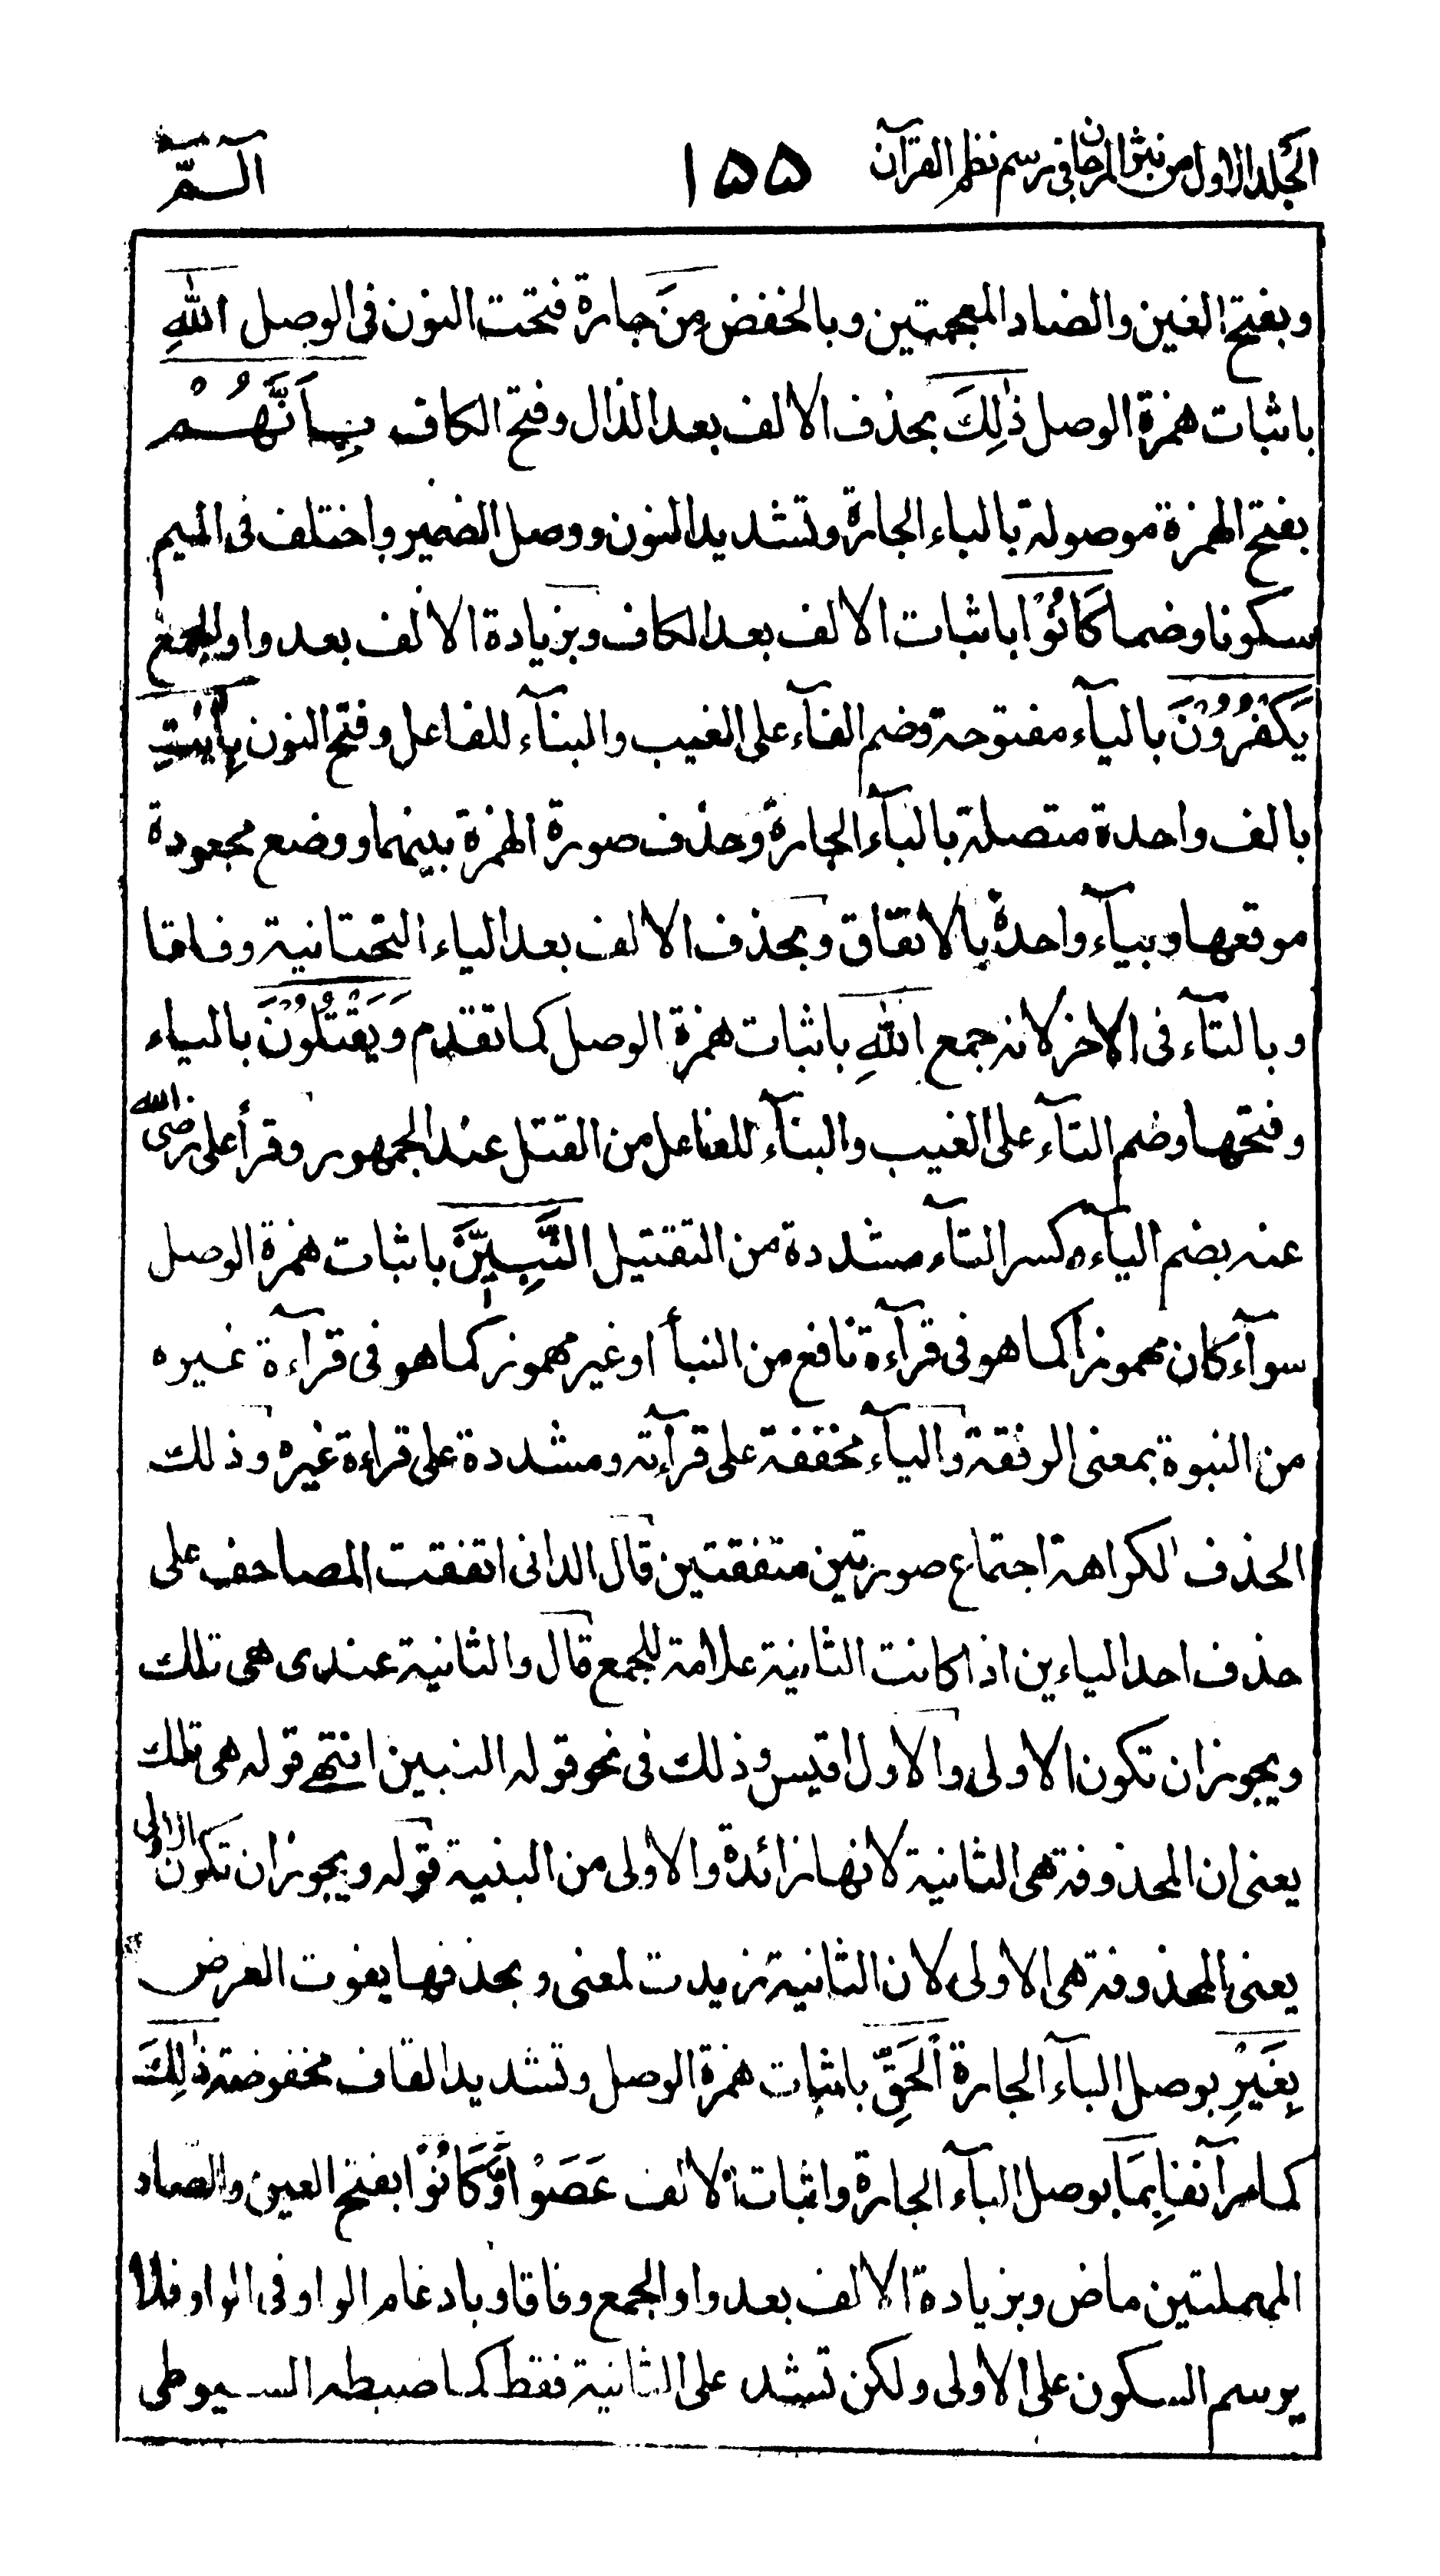 الجلد الاول من نثر المرجان فى رسم نظم القرآن
١٥٥
الٓـمّٓ
وبفتح الغين والضاد المعجمتين وبالخفض مِنَ جارة فتحت النون فى الوصل اللّٰهِ
باثبات همزة الوصل ذٰلِكَ بحذف الالف بعد الذال وفتح الكاف بِاَنَّهُمْ
بفتح الهمزة موصولة بالباء الجارة وتشديد النون ووصل الضمير واختلف فى الميم
سكونا وضما كَانُوْا باثبات الالف بعد الكاف وبزيادة الالف بعد واو الجمع
يَكْفُرُوْنَ بالياۤء مفتوحة وضم الفاۤء على الغيب والبناۤء للفاعل وفتح النون بِاٰيٰتِ
بالف واحدة متصلة بالباۤء الجارة وحذف صورة الهمزة بينهما ووضع مجعودة
موقعها وبياۤء واحدة بالاتفاق وبحذف الالف بعد الياء التحتانية وفاقا
وبالتاۤء فى الاخر لانه جمع اللّٰهِ باثبات همزة الوصل كما تقدم وَيَقْتُلُوْنَ بالياء
وفتحها وضم التاۤء على الغيب والبناۤء للفاعل من القتل عند الجمهور وقرأ على رضى الله
عنه بضم الياۤء وكسر التاۤء مشددة من التقتيل النَّبِيّٖنَ باثبات همزة الوصل
سوآء كان مهموزا كما هو فى قرآءة نافع من النبأ او غير مهموز كما هو فى قرآءة غيره
من النبوة بمعنى الرفعة والياۤء مخففة على قرآءته ومشددة على قراءة غيره وذلك
الحذف لكراهة اجتماع صورتين متفقتين قال الدانى اتفقت المصاحف على
حذف احد الياءين اذا كانت الثانية علامة للجمع قال والثانية عندى هى تلك
ويجوز ان تكون الاولى والاول اقيس وذلك فى نحو قوله النبين انتهى قوله هى تلك
يعنى ان المحذوفة هى الثانية لانها زائدة والاولى من البنية قوله ويجوز ان تكون الاولى
يعنى المحذوفة هى الاولى لان الثانية زيدت لمعنى وبحذفها يفوت الغرض
بِغَيْرِ بوصل الباۤء الجارة الْحَقِّ باثبات همزة الوصل وتشديد القاف مخفوضة ذٰلِكَ
كما مر آنفا بِمَا بوصل الباۤء الجارة واثبات الالف عَصَوْا وَّكَانُوْا بفتح العين والصاد
المهملتين ماض وبزيادة الالف بعد واو الجمع وفاقا وبادغام الواو فى الواو فلا
يرسم السكون على الاولى ولكن تشد على الثانية فقط كما ضبطه السيوطى